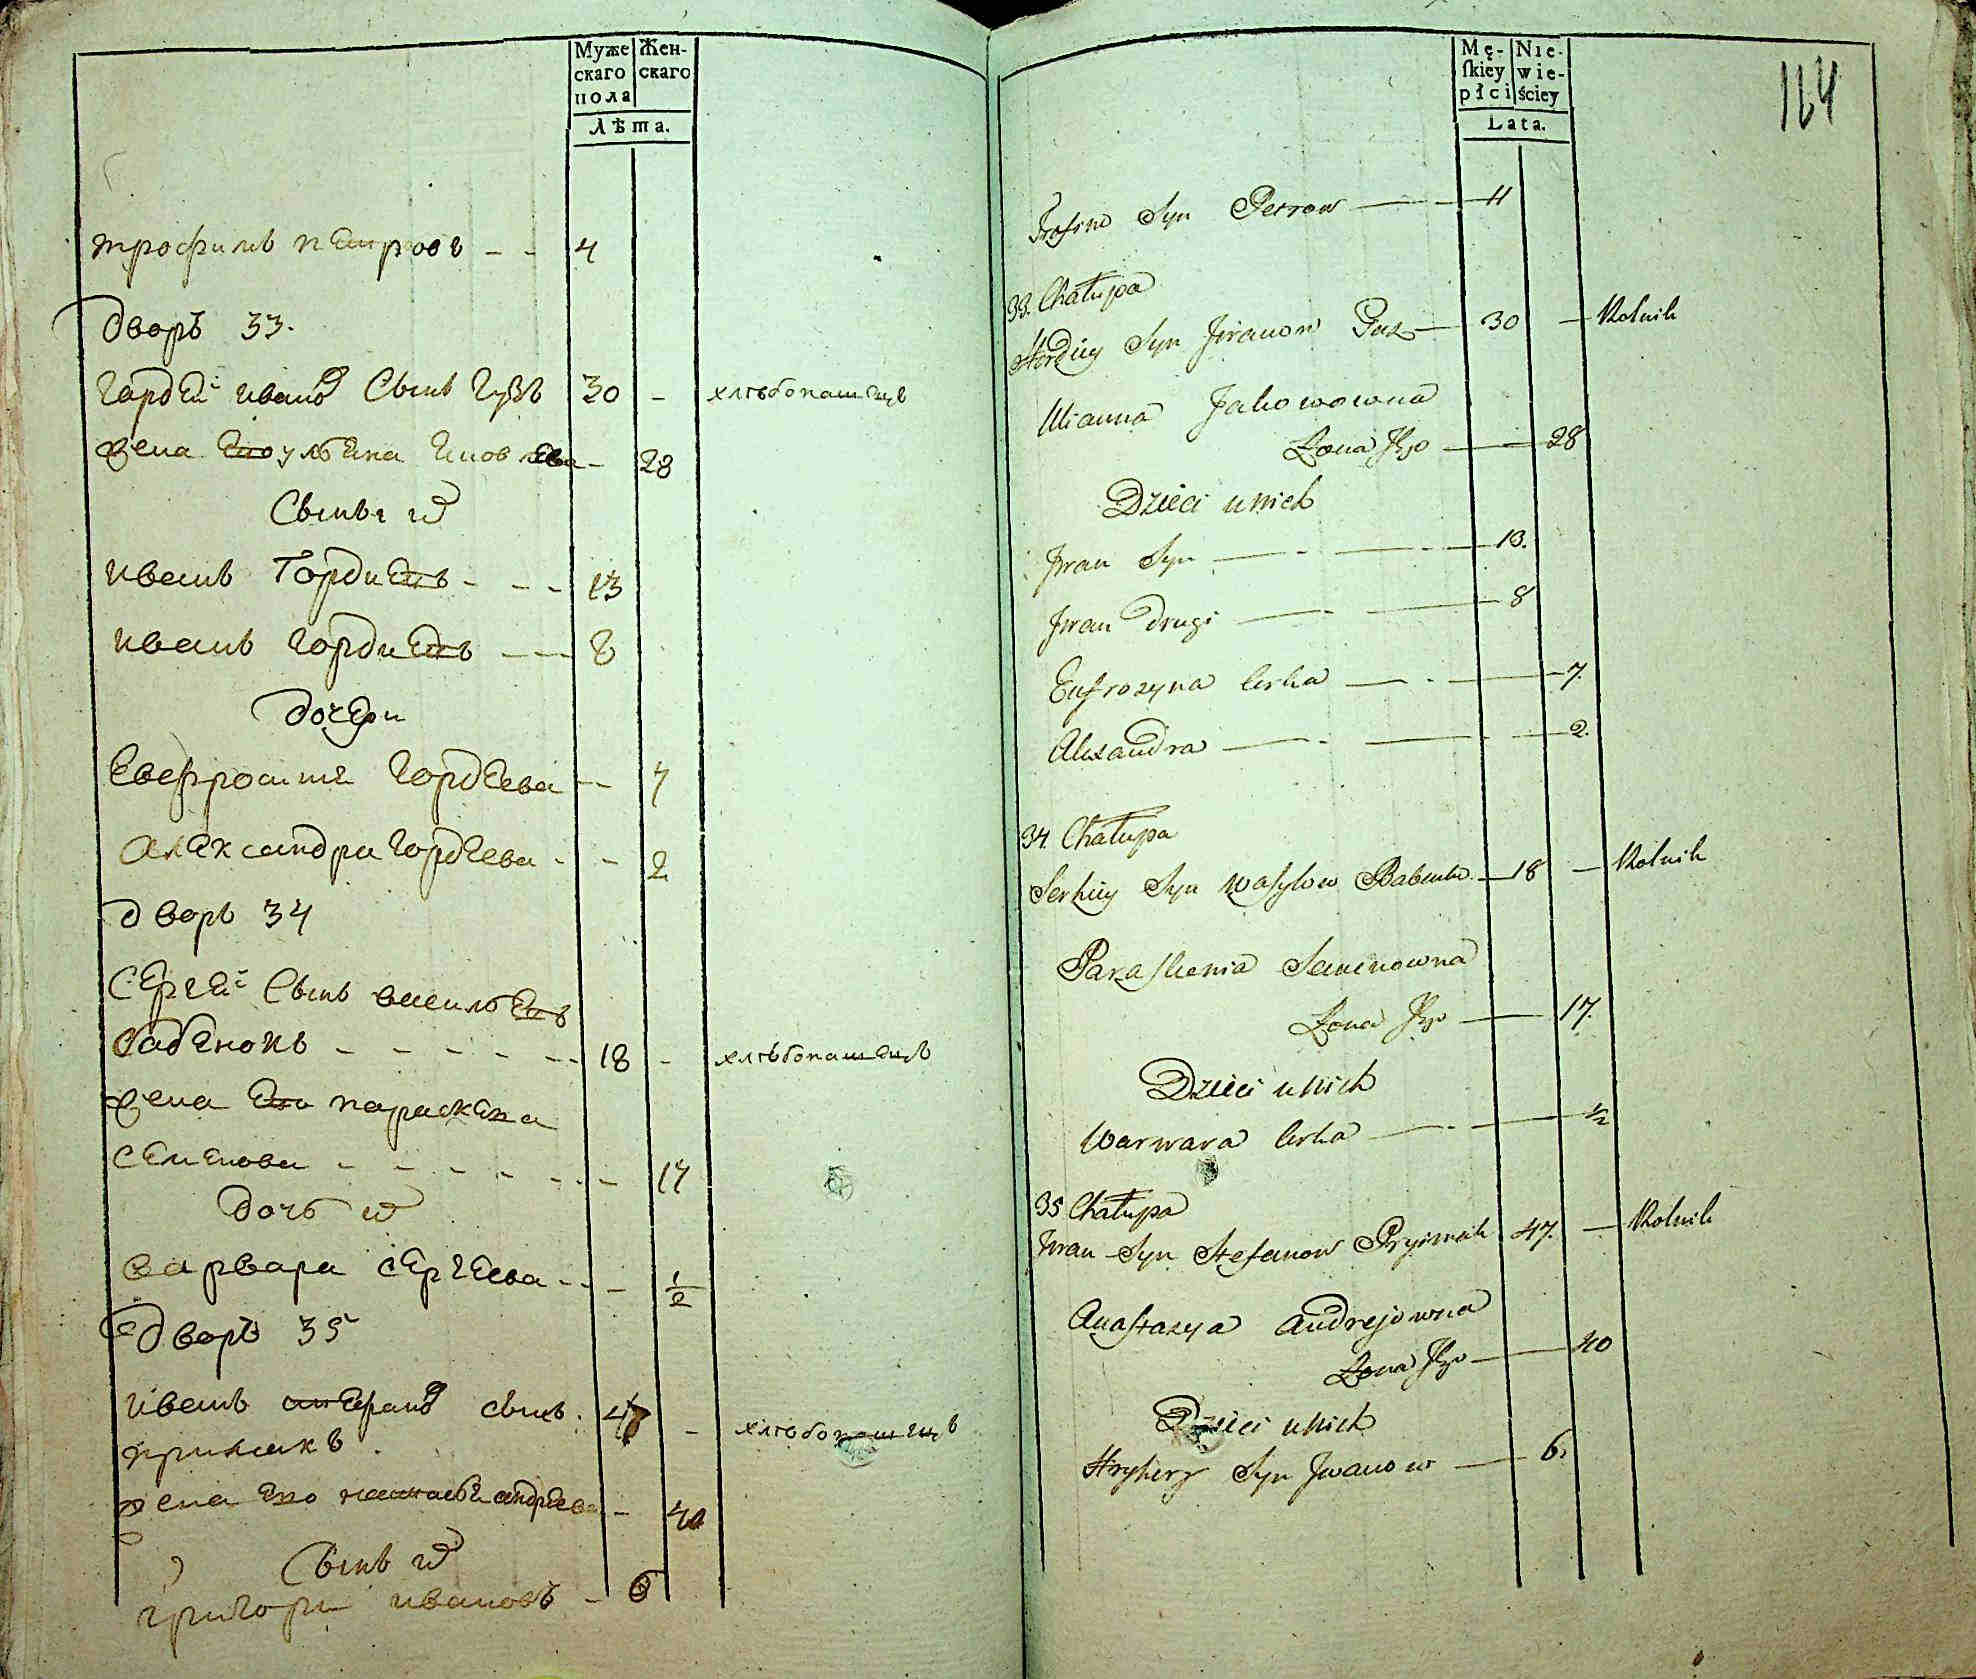 Муже
скаго
пола
Жен-
скаго
Лѣта.
трофимъ петровъ - - 4
дворъ 33.
гордей ивановъ сынъ гузъ 30 - хлѣбопашецъ
жена его ульяна - 28
сыны их
иванъ гордиевъ - - - 13
иванъ гордиевъ - - - 8
дочери
Евфросиния гордеева - - 7
александра гордеева - - 2
дворъ 34
сергей сынъ васильевъ
бабенокъ - - - - - - 18 - хлѣбопашецъ
жена его параскева
семенова - - - - - - 17
дочь их
варвара сергеева - - - 1/2
дворъ 35
иванъ стефановъ сынъ 47 - хлѣбопашецъ
приймакъ
жена его настасья андреева - 40
сынъ их
григори ивановъ - 6
Mę-
ſkiey
płci
Nie-
wie-
ściey
Lata.
114
Trofim Syn Petrow — 4
33. Chałupa
Hordiey Syn Iwanow Guz — 30 — Rolnik
Ulianna Jakowowna
Żona Jego — 28
Dzieci u nich
Iwan Syn — 13.
Iwan drugi — 8
Eufrozyna Corka — 7.
Alexandra — 2.
34 Chałupa
Serhiey Syn Wasylow Babenko — 18 — Rolnik
Paraſkenia Semenowna
Żona Jego — 17.
Dzieci u nich
Warwara Corka — 1/2
35 Chałupa
Iwan Syn Stefanow Pryimak 47. — Rolnik
Anaſtazya Andrejowna
Żona Jego — 40
Dzieci u nich
Hryhory Syn Iwanow — 6.